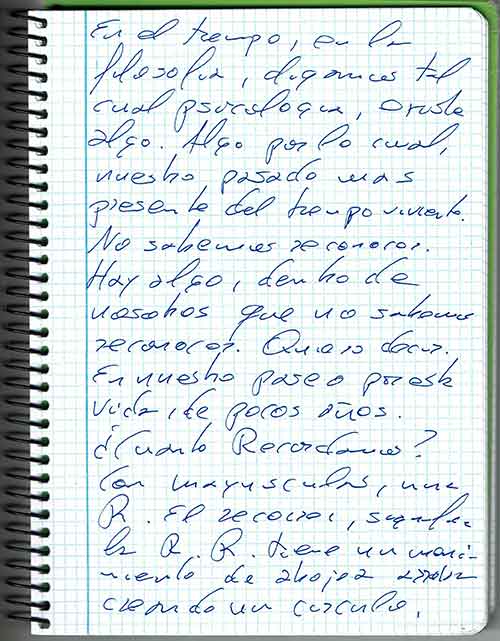 En el tiempo, en la
filosofia, digamos tal
cual psicologia, existe
algo. Algo por lo cual,
nuestro pasado mas
presente del tiempo viviente.
No sabemos reconocer.
Hay algo, dentro de
nosotros que no sabemos
reconocer. Quiero decir.
En nuestro paseo por esta
vida, de pocos años.
¿Cuanto Recordamos?
Con mayusculas, una
R. El recorrer,
la R. R. tiene un movi-
miento de abajo arriba
creando un circulo,